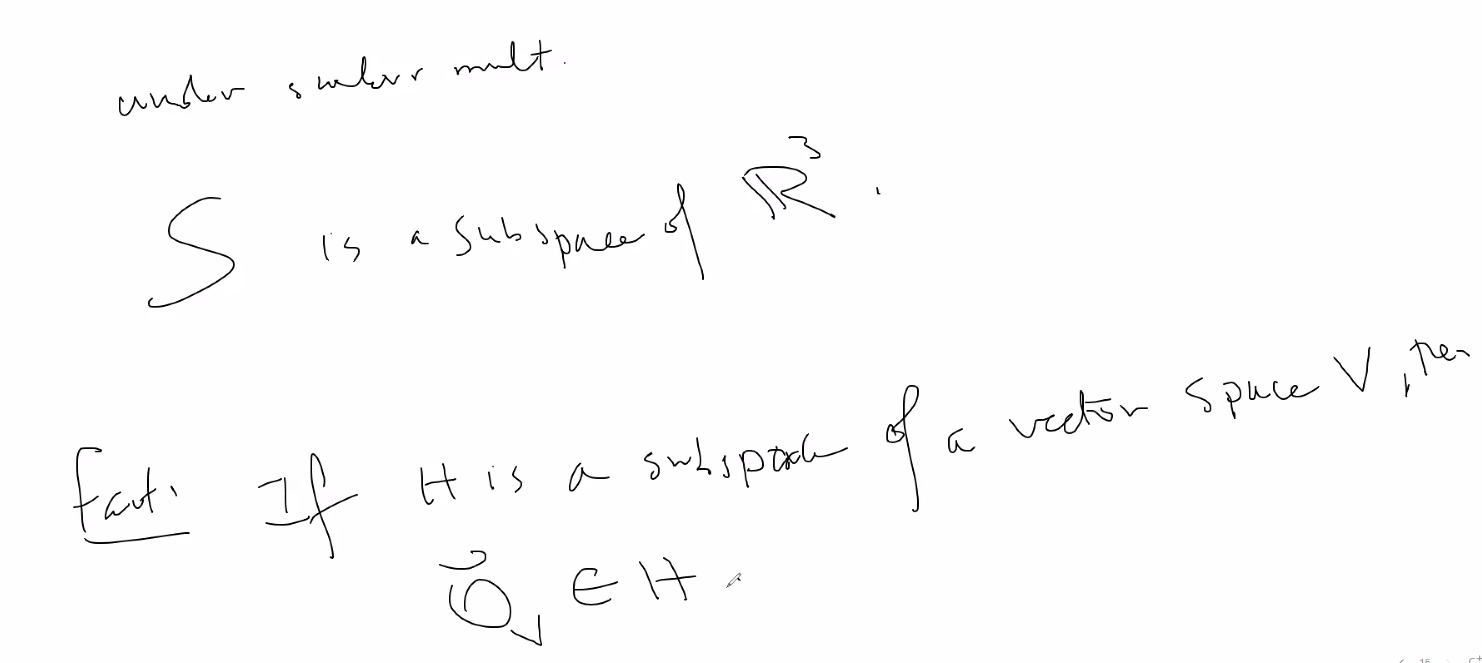 under scalar mult.
S is a subspace of ℝ³.
Fact: If H is a subspace of a vector space V, then
0⃗_V ∈ H